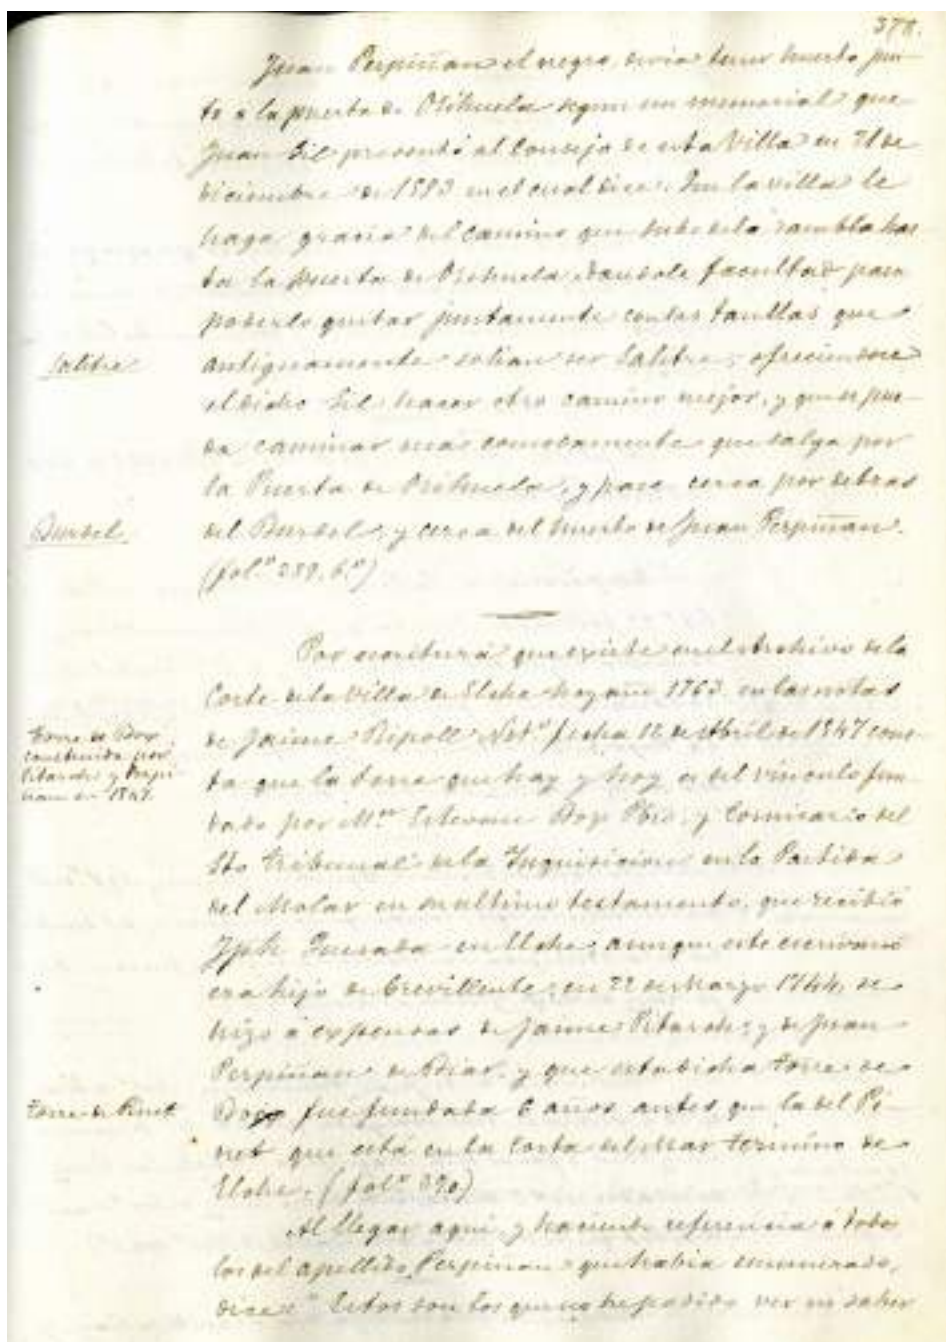 378.
Juan Perpiñan el negro, devia tener huerto jun-
to a la puerta de Orihuela segun un memorial que
Juan Gil presentó al Consejo de esta Villa en 21 de
diciembre de 1583 en el cual dice: Que la villa le
haga gracia del camino que sube de la rambla has-
ta la puerta de Orihuela, dandole facultad para
poderlo quitar juntamente con las taullas que
Salitre
antiguamente solian ser Salitre, ofreciendose
el dicho Gil hacer otro camino mejor, y que se pue-
da caminar mas comodamente que salga por
la Puerta de Orihuela, y pase cerca por detras
Burdel
del Burdel, y cerca del huerto de Juan Perpiñan.
(fol.º 289, b.º)
Por escritura que existe en el Archivo de la
Corte de la Villa de Elche hoy año 1763 en las notas
Torre de Box
construida por
Pitarch y Perpi-
ñan en 1547.
de Jaime Ripoll Not.º fecha 12 de Abril de 1547 cons-
ta que la torre que hay y hoy es del vinculo fun-
dado por M.n Estevan Box Pbro. y Comisario del
Sto Tribunal de la Inquisicion en la Partida
del Molar en su ultimo testamento, que recibió
Jph. Quesada en Elche, aunque este escrivano
era hijo de Crevillente, en 22 de Marzo 1744, se
hizo a expensas de Jaime Pitarch, y de Juan
Perpiñan de Biar, y que esta dicha torre de
Torre de Pinet
Box fue fundada 6 años antes que la del Pi-
net que está en la Costa del Mar termino de
Elche. (fol.º 290)
Al llegar aqui, y haciendo referencia á todos
los del apellido Perpiñan que habia enumerado,
dice: "Estos son los que yo he podido ver en saber